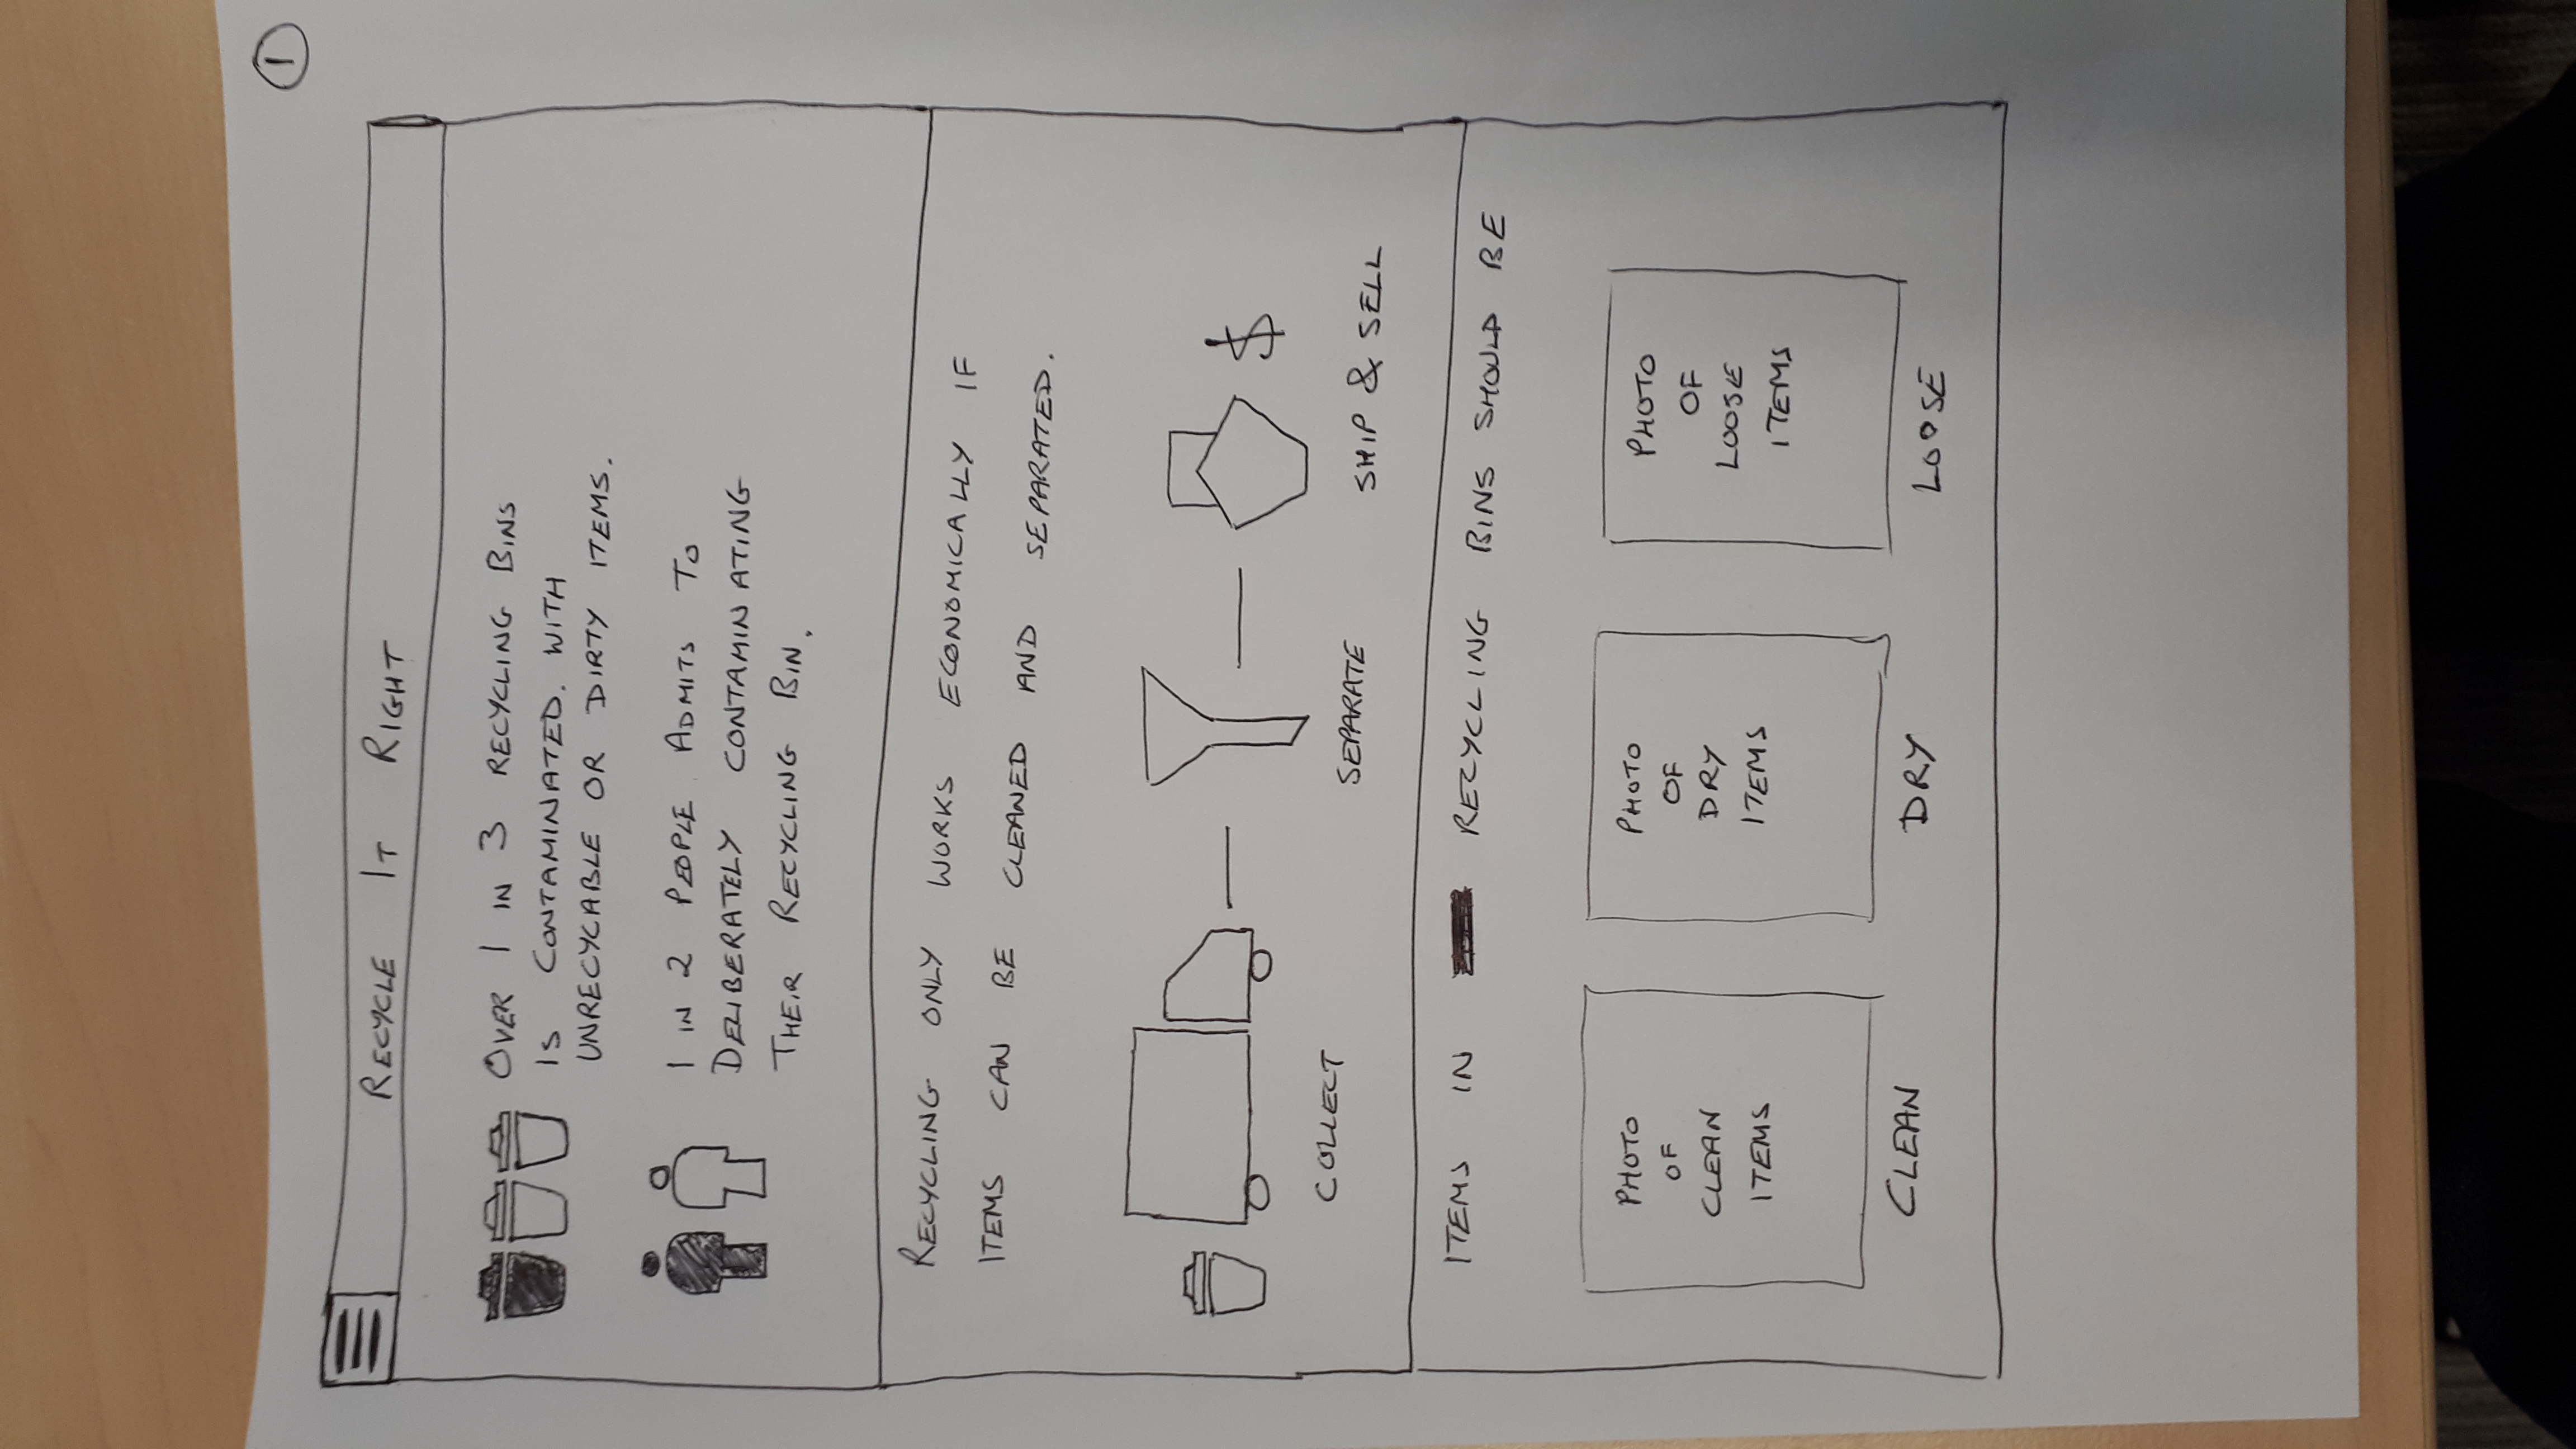 1
RECYCLE IT RIGHT
OVER 1 IN 3 RECYCLING BINS
IS CONTAMINATED. WITH
UNRECYCABLE OR DIRTY ITEMS.
1 IN 2 PEOPLE ADMITS TO
DELIBERATELY CONTAMINATING
THEIR RECYCLING BIN.
RECYCLING ONLY WORKS ECONOMICALLY IF
ITEMS CAN BE CLEANED AND SEPARATED.
$
COLLECT
SEPARATE
SHIP & SELL
ITEMS IN RECYCLING BINS SHOULD BE
PHOTO
OF
CLEAN
ITEMS
PHOTO
OF
DRY
ITEMS
PHOTO
OF
LOOSE
ITEMS
CLEAN
DRY
LOOSE